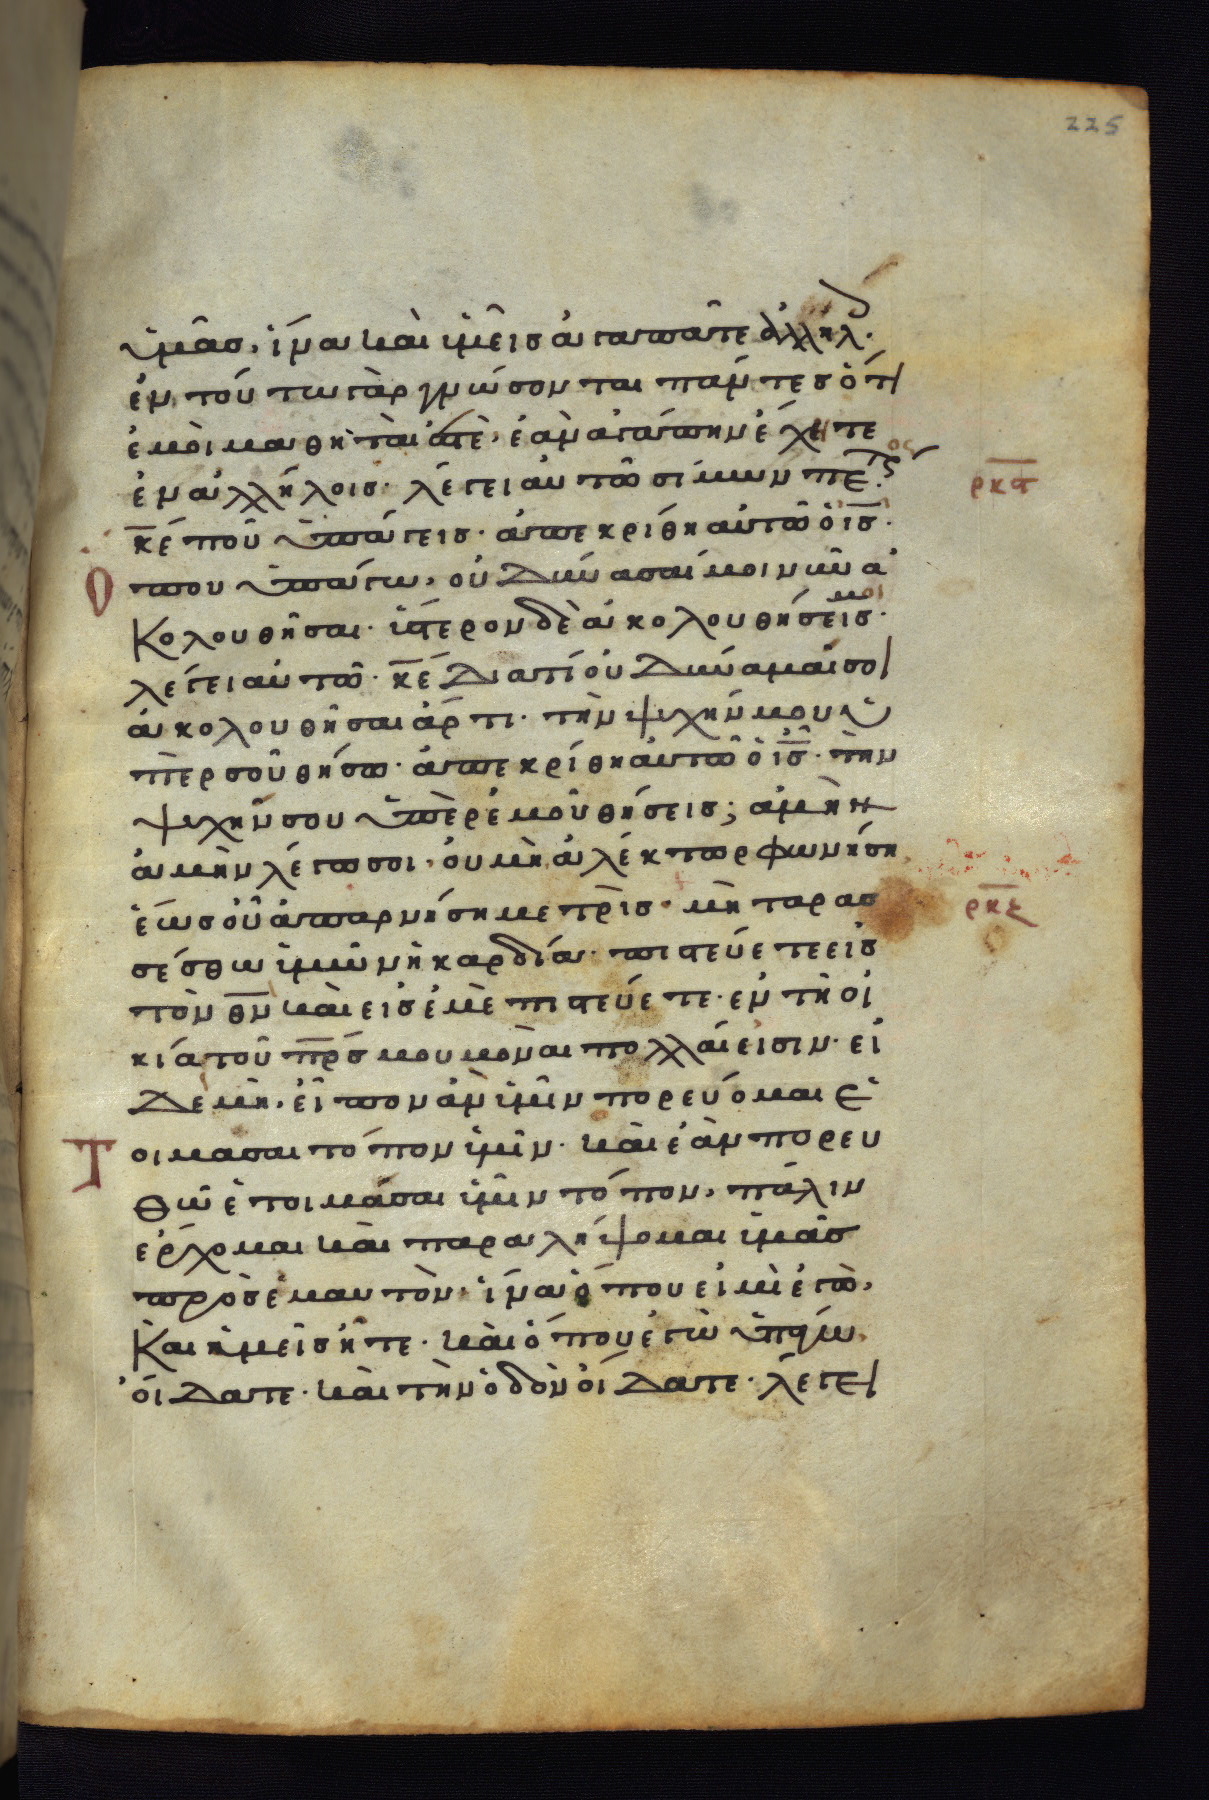 225
ὑμᾶσ, ἵνα καὶ ὑμεῖσ ἀγαπᾶτε ἀλλήλ.
ἐν τούτω γὰρ γνώσονται πάντεσ ὅτι
ἐμοὶ μαθηταί ἐστὲ, ἐὰν ἀγάπην ἔχητε
ἐν ἀλλήλοισ. λέγει αὐτῶ σίμων πέτρος
κε ποῦ ὑπάγεισ. ἀπεκρίθη αὐτῶ ὁ ισ.
ὅπου ὑπάγω, οὐ δύνασαί μοι νῦν ἀ
κολουθῆσαι. ὕστερον δὲ ἀκολουθήσεισ μοι.
λέγει αὐτῶ. κε διατί οὐ δύναμαί σοι
ἀκολουθῆσαι ἄρτι. τὴν ψυχήν μου ὑ
πὲρ σοῦ θήσω. ἀπεκρίθη αὐτῶ ὁ ισ. τὴν
ψυχήν σου ὑπὲρ ἐμοῦ θήσεισ; ἀμὴν
ἀμὴν λέγω σοι, οὐ μὴ ἀλέκτωρ φωνήση
ἕωσ οὗ ἀπαρνήση με τρίσ. μὴ ταρασ
σέσθω ὑμῶν ἡ καρδία. πιστεύετε εἰσ
τὸν θν καὶ εἰσ ἐμὲ πιστεύετε. ἐν τῆ οἰ
κία τοῦ πρσ μου μοναὶ πολλαί εἰσιν. εἰ
δὲ μὴ, εἶπον ἂν ὑμῖν πορεύομαι ἑ
τοιμάσαι τόπον ὑμῖν. καὶ ἐὰν πορευ
θῶ ἑτοιμάσαι ὑμῖν τόπον, πάλιν
ἔρχομαι καὶ παραλήψομαι ὑμᾶσ
πρὸσ ἐμαυτὸν, ἵνα ὅπου εἰμὶ ἐγὼ,
καὶ ἡμεῖσ ἦτε. καὶ ὅπου ἐγὼ ὑπάγω
οἴδατε. καὶ τὴν ὁδὸν οἴδατε. λέγει
ρκϛ
ρκζ